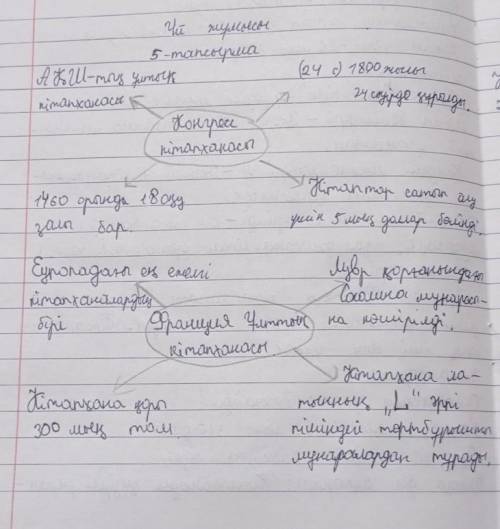 Үй жұмысы
5-тапсырма
АҚШ-тың ұлттық
кітапханасы
(24 с) 1800 жылы
24 сәуірде құрылды.
Конгресс
кітапханасы
1460 орындық 18 оқу
залы бар.
Кітаптар сатып алу
үшін 5 мың доллар бөлінді.
Еуропадағы ең ежелгі
кітапханалардың
бірі
Лувр қорғанындағы
Соколина мұнарасы-
на көшірілді.
Франция Ұлттық
кітапханасы
Кітапхана қоры
300 мың том.
Кітапхана ла-
тынның „L" әрпі
пішіндей төртбұрышты
мұнаралардан тұрады.